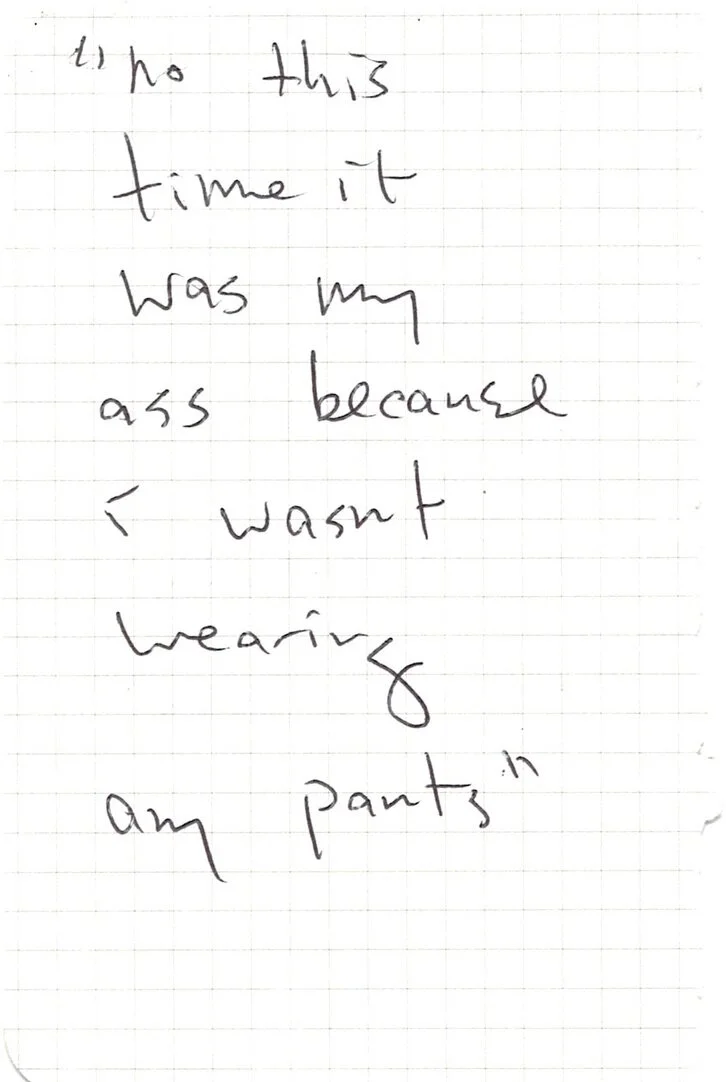 "no this
time it
was my
ass because
i wasnt
wearing
any pants"